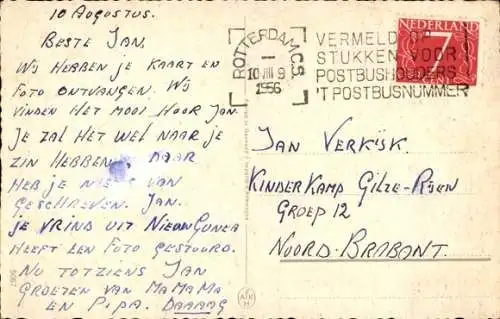 10 Augustus.
Beste Jan,
Wij hebben je kaart en
foto ontvangen. Wij
vinden het mooi hoor Jan.
Je zal het wel naar je
zin hebben, daar
heb je niets van
geschreven. Jan.
je vriend uit Nieuw Guinea
heeft een foto gestuurd.
Nu tot ziens Jan
groeten van Ma Ma Ma
en Pipa. Daaaag
ROTTERDAM C.S.
10 VIII 9
1956
VERMELD OP
STUKKEN VOOR
POSTBUSHOUDERS
'T POSTBUSNUMMER
NEDERLAND
7
Jan Verkijk.
Kinderkamp Gilze-Rijen
Groep 12
Noord-Brabant.